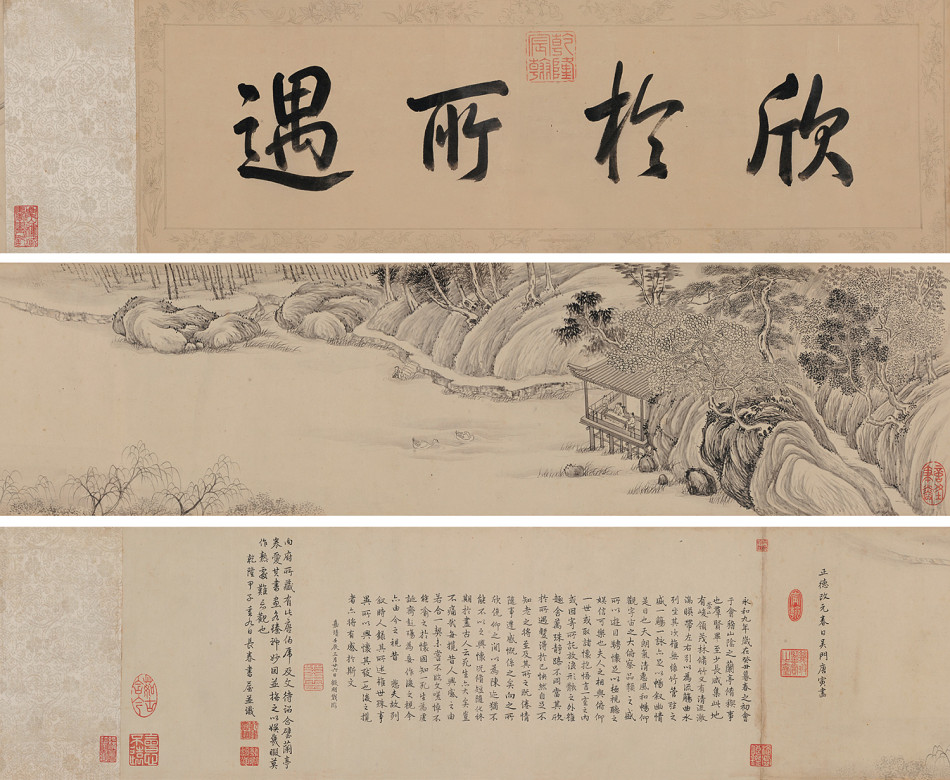 欣於所遇
乾隆宸翰
正德改元春日吳門唐寅畫
永和九年歲在癸丑暮春之初會
于會稽山陰之蘭亭脩禊事
也羣賢畢至少長咸集此地
有崇山峻領茂林脩竹又有清流激
湍暎帶左右引以為流觴曲水
列坐其次雖無絲竹管弦之
盛一觴一詠亦足以暢敘幽情
是日也天朗氣清惠風和暢仰
觀宇宙之大俯察品類之盛
所以遊目騁懷足以極視聽之
娛信可樂也夫人之相與俯仰
一世或取諸懷抱悟言一室之內
或因寄所託放浪形骸之外雖
趣舍萬殊靜躁不同當其欣
於所遇蹔得於己快然自足不
知老之將至及其所之既倦情
隨事遷感慨係之矣向之所
欣俛仰之間以為陳迹猶不
能不以之興懷況脩短隨化終
期於盡古人云死生亦大矣豈
不痛哉每攬昔人興感之由
若合一契未嘗不臨文嗟悼不
能喻之於懷固知一死生為虛
誕齊彭殤為妄作後之視今
亦由今之視昔 悲夫故列
敘時人錄其所述雖世殊事
異所以興懷其致一也後之攬
者亦將有感於斯文
內府所藏有此唐伯虎及文待詔合璧蘭亭
卷愛其書畫各臻神妙因並採之以娛幾暇莫
作熱鬧難忘觀也
乾隆甲子重九日長春書屋並識